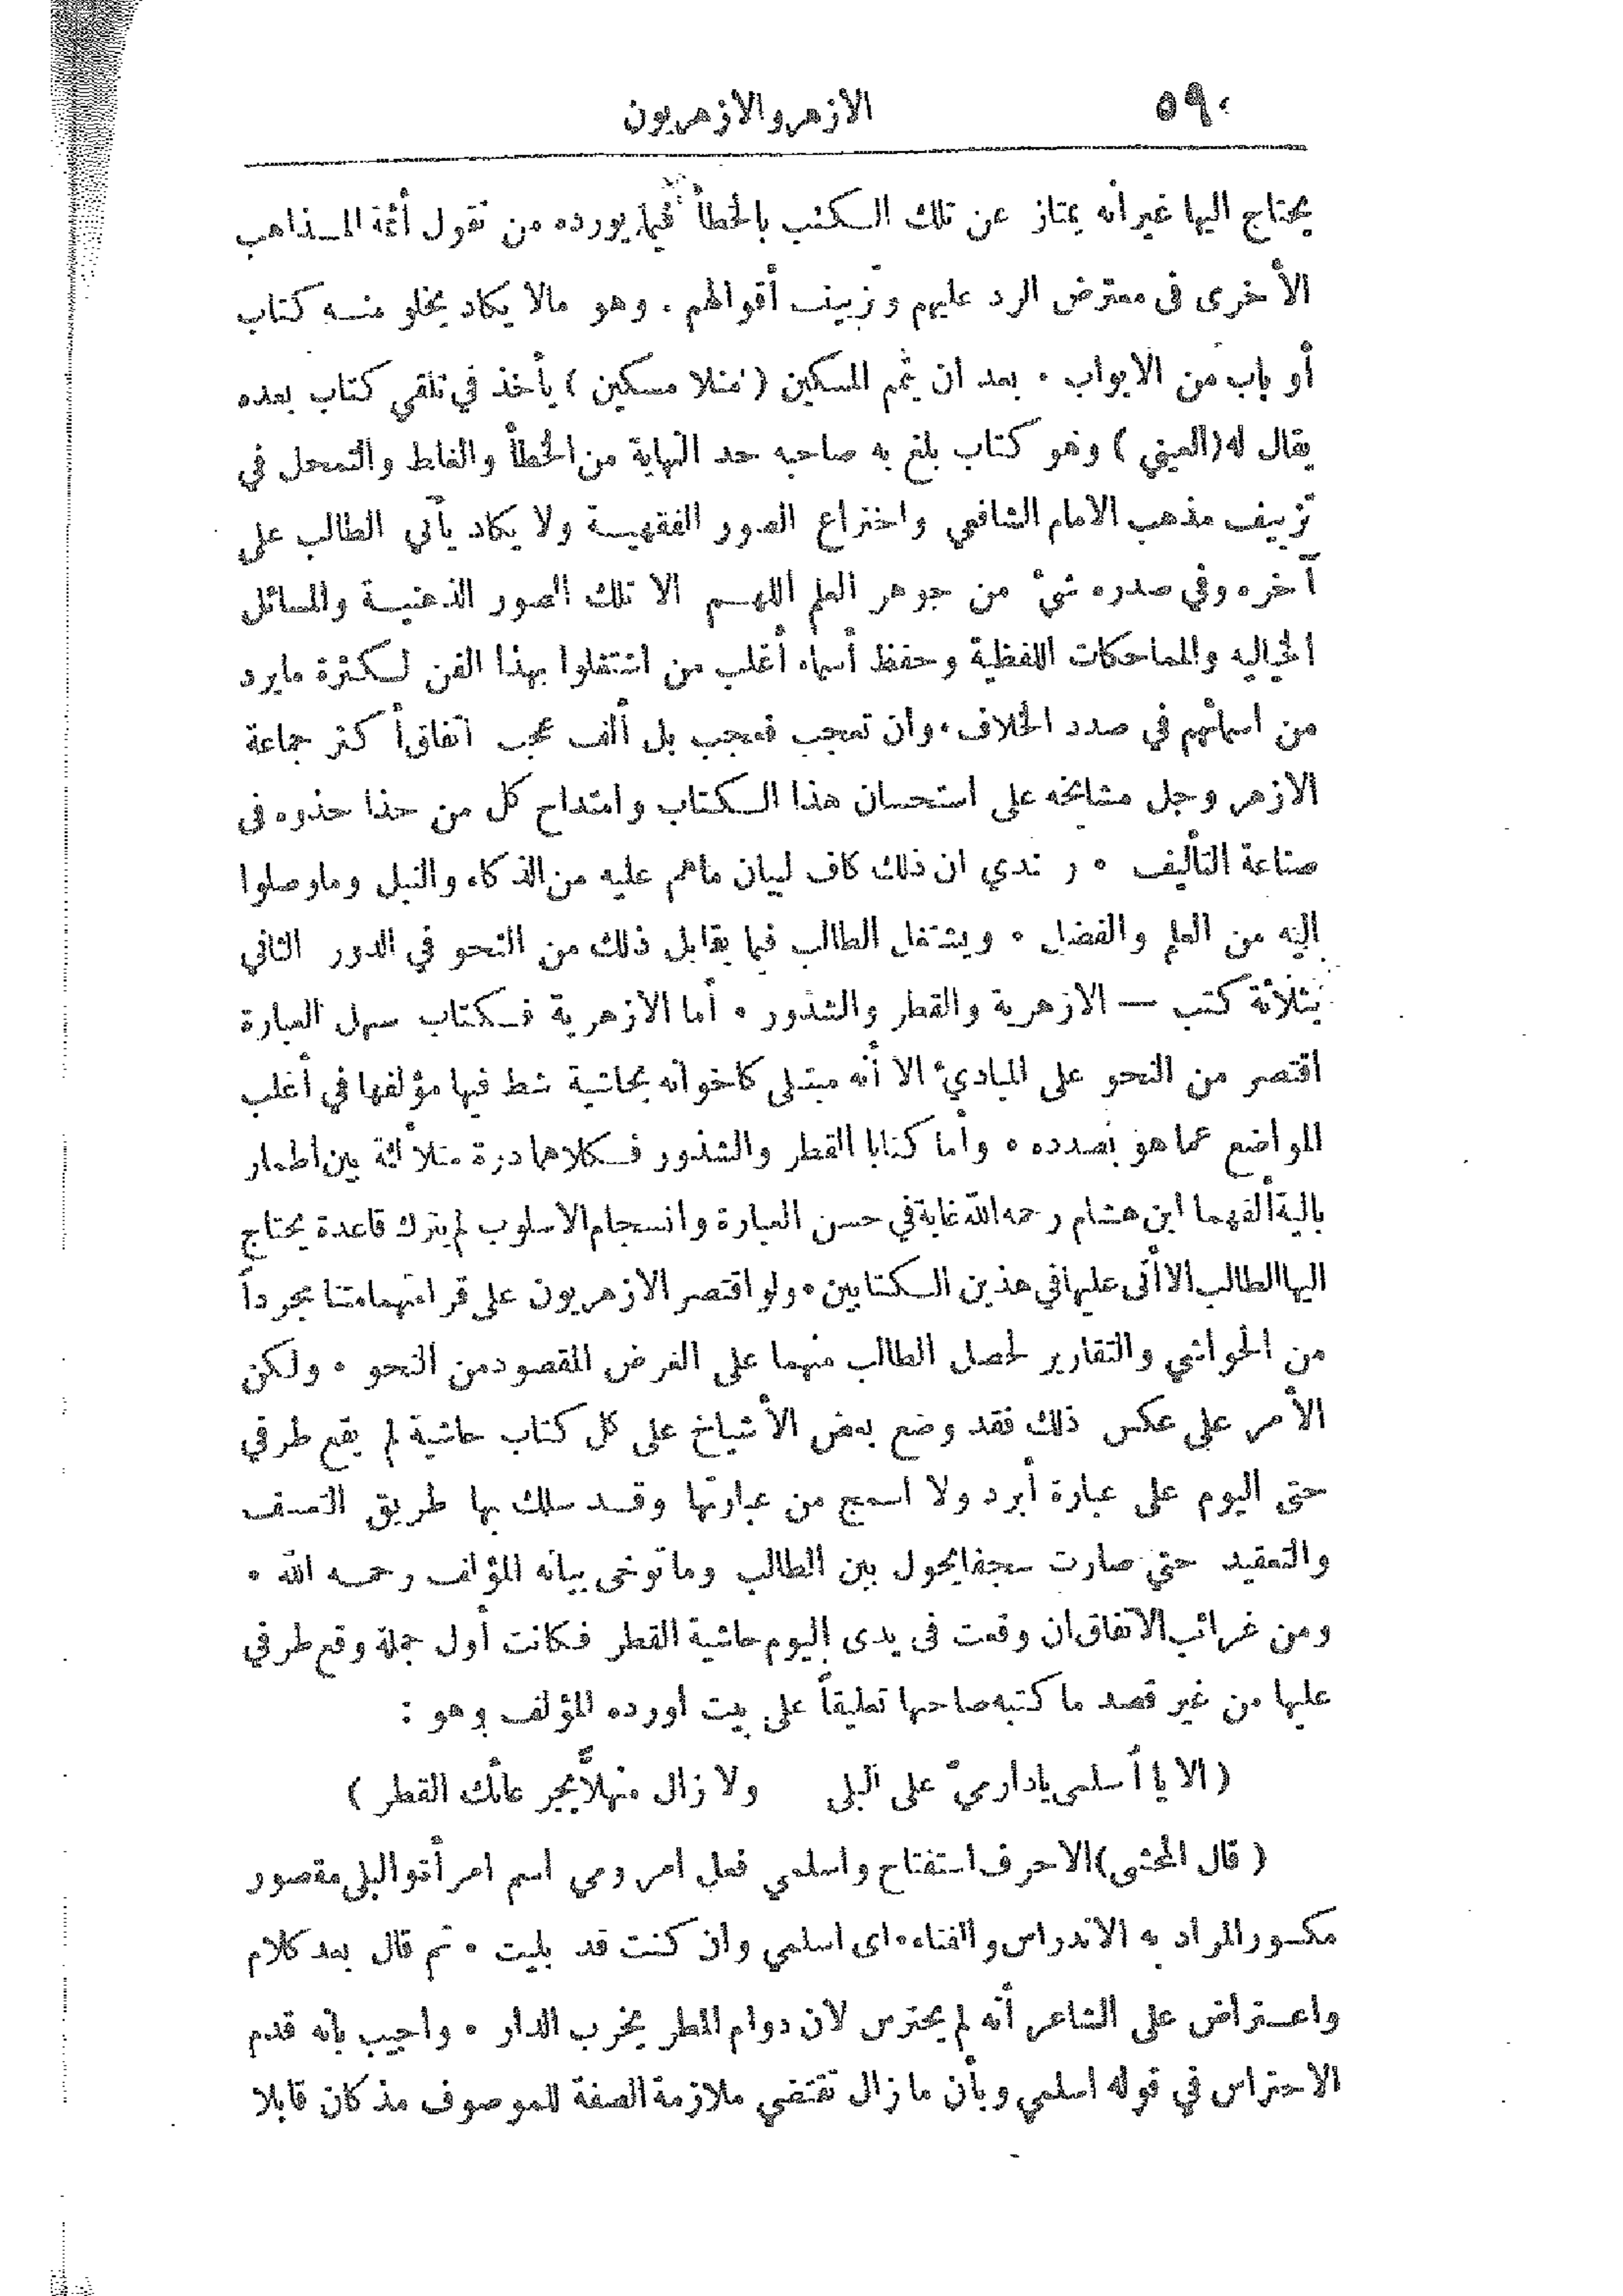 ٥٩٠
الازهر والازهريون
يحتاج اليها غير أنه يمتاز عن تلك الكتب بالخطأ فيما يورده من نقول أئمة المذاهب
الأخرى فى معترض الرد عليهم وتزييف أقوالهم . وهو مالا يكاد يخلو منه كتاب
أو باب من الابواب . بعد ان يتم المسكين ( منلا مسكين ) يأخذ في تلقي كتاب بعده
يقال له (العيني ) وهو كتاب بلغ به صاحبه حد النهاية من الخطأ والغلط والتمحل في
تزييف مذهب الامام الشافعي واختراع الصور الفقهية ولا يكاد يأتي الطالب على
آخره وفي صدره شيء من جوهر العلم اللهم الا تلك الصور الذهنية والمسائل
الخياليه والمماحكات اللفظية وحفظ أسماء أغلب من اشتغلوا بهذا الفن لكثرة مايرد
من اسمائهم في صدد الخلاف . وان تعجب فعجب بل ألف عجب اتفاق أكثر جماعة
الازهر وجل مشايخه على استحسان هذا الكتاب وامتداح كل من حذا حذوه فى
صناعة التأليف . ندي ان ذلك كاف لبيان ماهم عليه من الذكاء والنبل وما وصلوا
اليه من العلم والفضل . ويشتغل الطالب فيما يقابل ذلك من النحو في الدور الثاني
بثلاثة كتب — الازهرية والقطر والشذور . أما الازهرية فكتاب سهل العبارة
اقتصر من النحو على المبادئ الا أنه مبتلى كاخوانه بحاشية شط فيها مؤلفها في أغلب
المواضع عما هو بصدده . وأما كتابا القطر والشذور فكلاهما درة متلألئة بين اطمار
بالية ألفهما ابن هشام رحمه الله غاية في حسن العبارة وانسجام الاسلوب لم يترك قاعدة يحتاج
اليها الطالب الا أتى عليها في هذين الكتابين . ولو اقتصر الازهريون على قراءتهما متنا مجرداً
من الحواشي والتقارير لحصل الطالب منهما على الغرض المقصود من النحو . ولكن
الأمر على عكس ذلك فقد وضع بعض الأشياخ على كل كتاب حاشية لم يقع طرفي
حتى اليوم على عبارة أبرد ولا اسمج من عبارتها وقد سلك بها طريق التعسف
والتعقيد حتى صارت سجفا يحول بين الطالب وما توخى بيانه المؤلف رحمه الله .
ومن غرائب الاتفاق ان وقعت فى يدى اليوم حاشية القطر فكانت أول جملة وقع طرفي
عليها من غير قصد ما كتبه صاحبها تعليقاً على بيت أورده المؤلف وهو :
( الا يا أسلمى يا دار ميّ على البلى ولا زال منهلاًّ بجرعائك القطر )
( قال المحشى) الا حرف استفتاح واسلمي فعل امر ومي اسم امرأة والبلى مقصور
مكسور المراد به الاندراس والفناء . اى اسلمي وان كنت قد بليت . ثم قال بعد كلام
واعتراض على الشاعر أنه لم يحترس لان دوام المطر يخرب الدار . واجيب بانه قدم
الاحتراس في قوله اسلمي وبأن ما زال تقتضي ملازمة الصفة للموصوف مذ كان قابلا